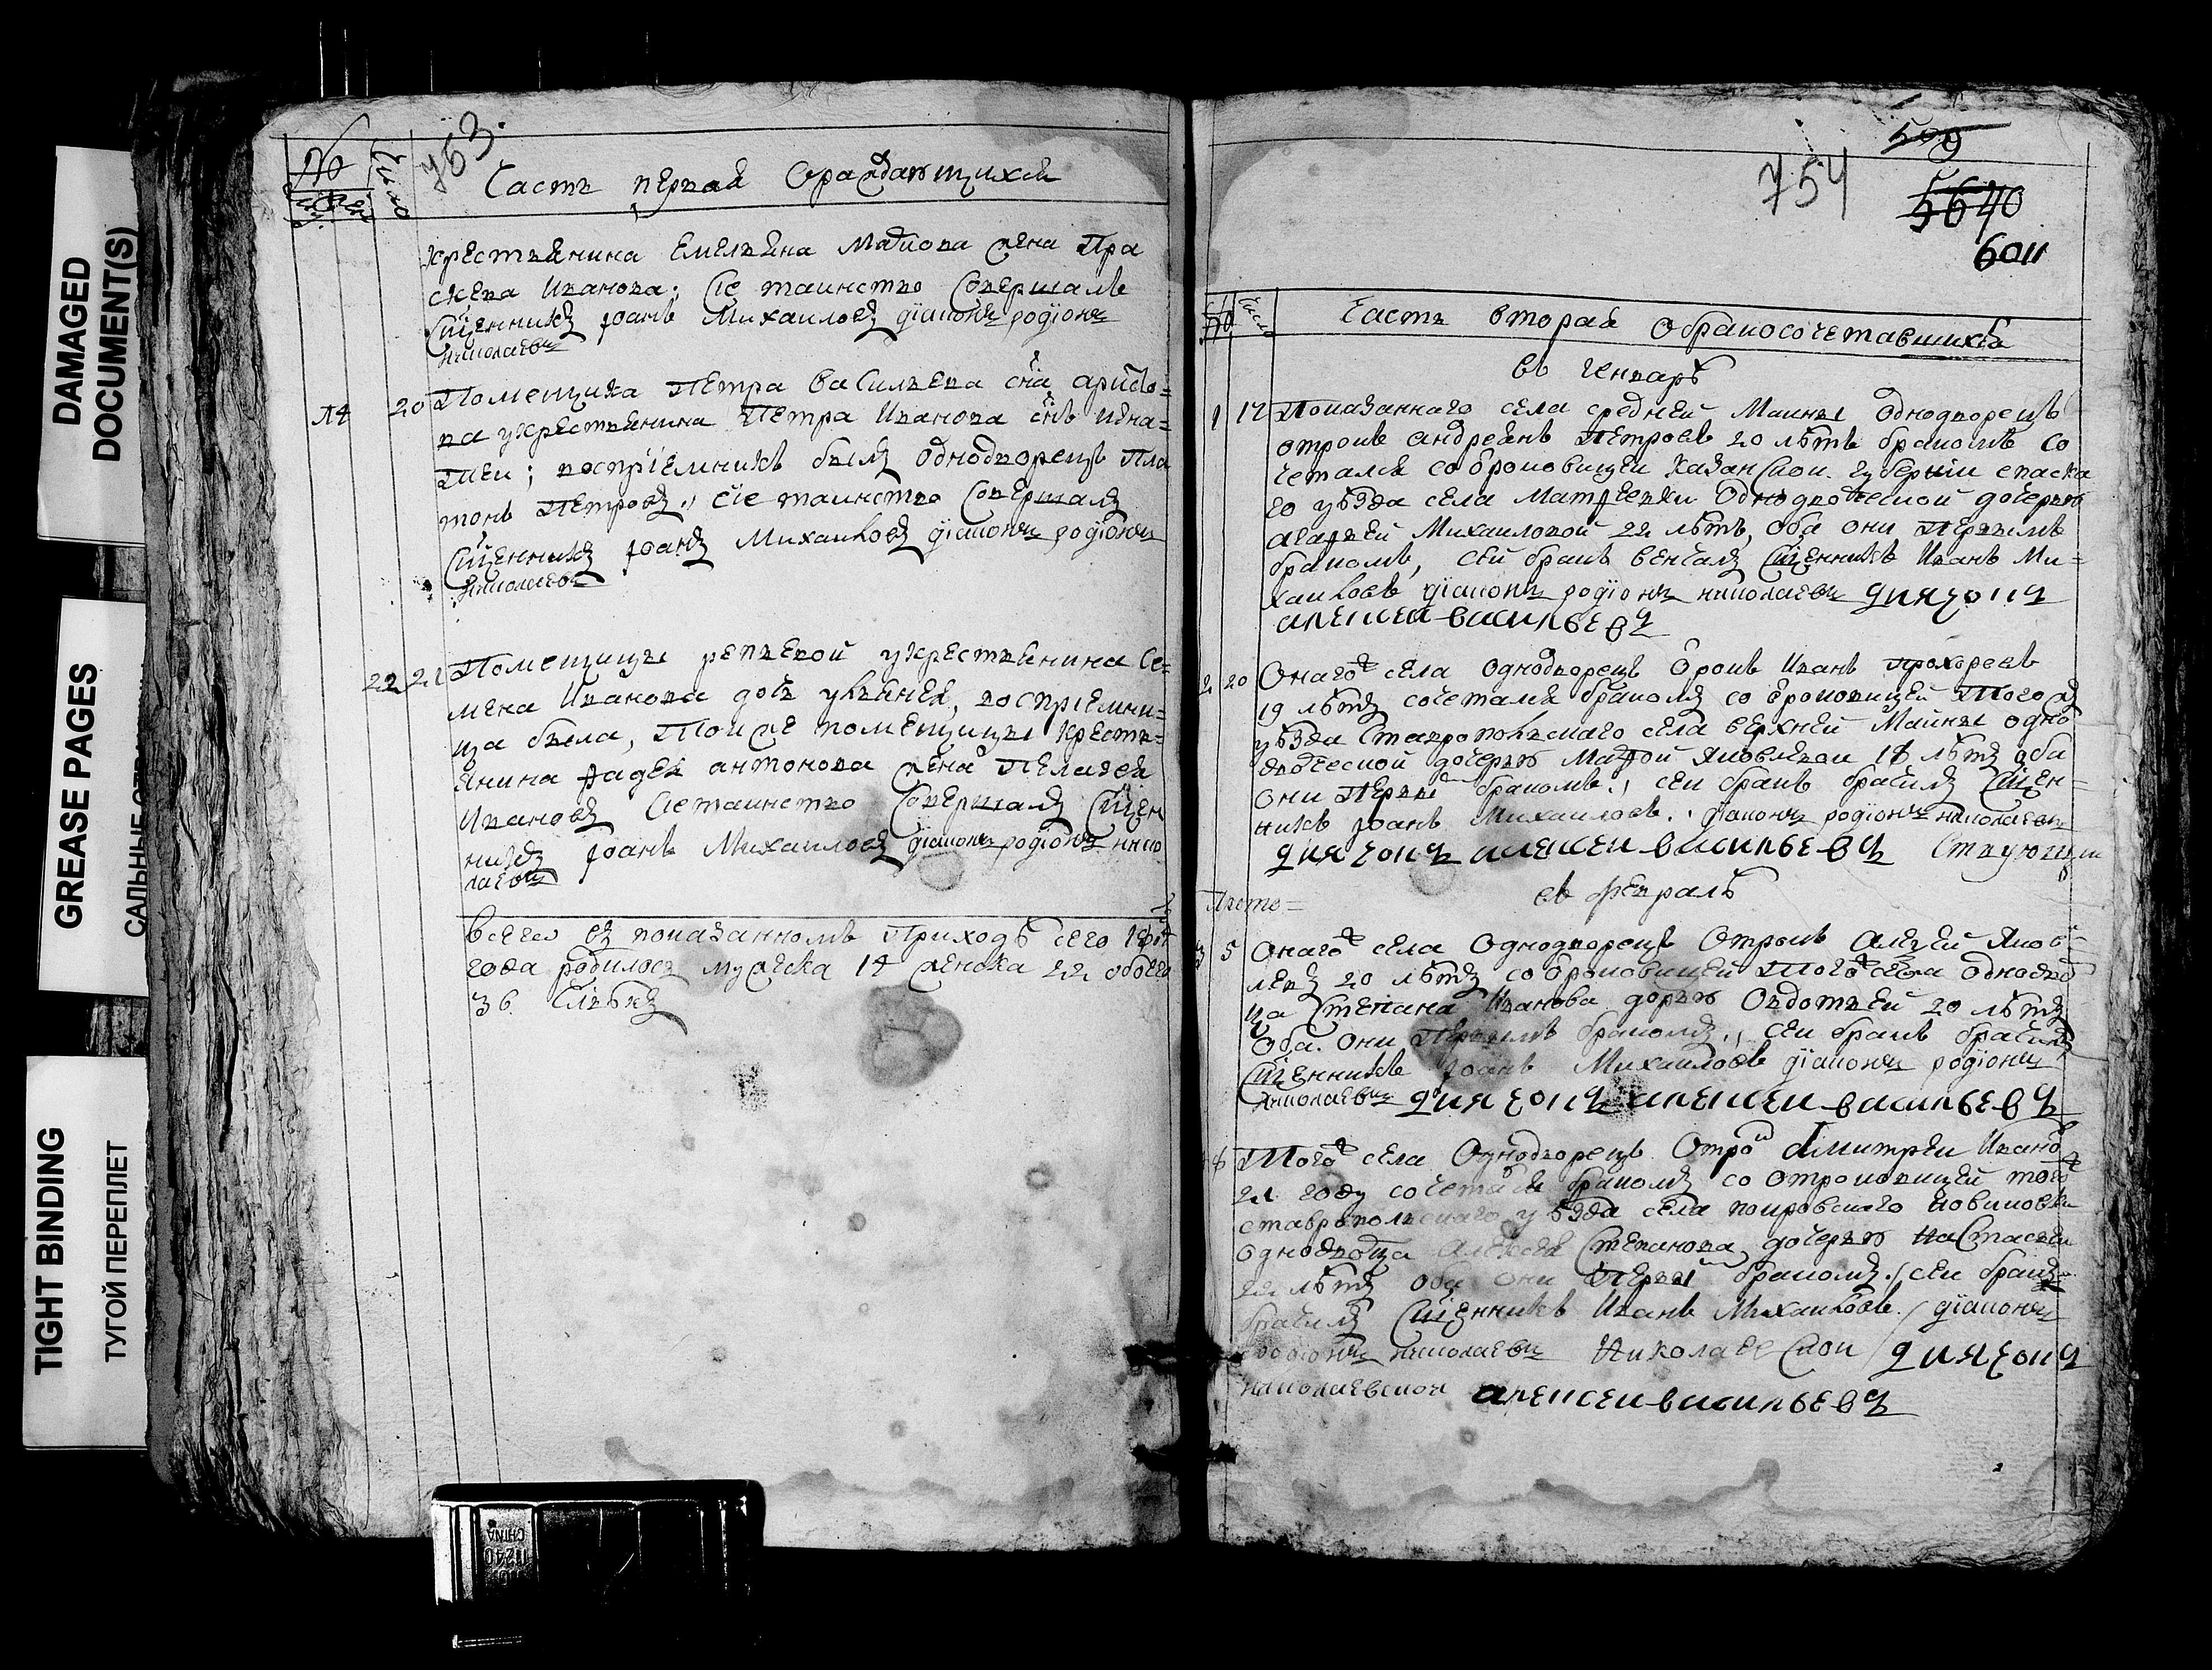 DAMAGED
DOCUMENT(S)
GREASE PAGES
TIGHT BINDING
ТУГОЙ ПЕРЕПЛЕТ
№
число
763.
Часть первая О раждающихся
крестьянина Емельяна жена Пра
Иванова; Сіе таинство Совершалъ
Сщенникъ Іоанъ Михаиловъ діаконъ родіонъ
николаевъ
14 20 Помещика Петра Василева сна
ва у крестьянина Петра Иванова снъ Игна=
тей; воспріемникъ былъ Однодворецъ Пла
тонъ Петровъ., Сіе таинство Совершалъ
Сщенникъ Іоанъ Михаиловъ діаконъ родіонъ
николаевъ
22 21 Помещицы репьевой у крестьянина Се=
мена Иванова дочь ульянея, воспріемни=
ца была, Той же помещицы Кресть=
янина Фадея антонова жена Пелагея
Иванова Сіе таинство Совершалъ Сщен
никъ Іоанъ Михаиловъ діаконъ родіонъ нико
лаевъ
Всего въ показанномъ Приходѣ сего
года родилось мужеска 14 женска 22 обоего
36. Человѣкъ
754
5640
6011
№ число
Часть вторая О бракосочетавшихся
въ генварѣ
1 17 Показаннаго села средней Маины Однодворецъ
отрокъ андреянъ Петровъ 20 лѣтъ бракомъ со
четался со отроковицеи Казанской губерніи спаска
го уѣзда села Матвеевки Однодворческой дочерью
Михаиловой 22 лѣтъ, оба они Первымъ
бракомъ, Сей бракъ венчалъ Сщенникъ Иванъ Ми=
хаиловъ діаконъ родіонъ николаевъ дьячокъ
алексеи васильевъ
2 20 Онагожъ села Однодворецъ Отрокъ Иванъ прохоревъ
19 лѣтъ сочетался бракомъ со отроковицеи Тогожъ
уѣзда Ставропольскаго села верхней Майны одно
дворческой дочерью Яковлевой 18 лѣтъ оба
они Первымъ бракомъ., сеи бракъ брачилъ Сщен=
никъ Іоанъ Михаиловъ. діаконъ родіонъ николаевъ
дьячокъ алексеи васильевъ
въ февралѣ
3 5 Онагожъ села Однодворецъ Отрокъ Алексей Яков=
левъ 20 лѣтъ со отроковицей Тогожъ села Однодвор
ца Степана Иванова дочерью Овдотьей 20 лѣтъ
Оба. Они Первымъ бракомъ., Сеи бракъ брачилъ
Сщенникъ Іоанъ Михаиловъ діаконъ родіонъ
николаевъ дьячокъ алексеи васильевъ
8 Тогожъ села Однодворецъ Отрокъ Дмитреи Ивановъ
21 году сочетался бракомъ со отроковицей тогожъ
ставропольскаго уѣзда села покровскаго
однодворца Алексея Степанова дочерью настасьей
22 лѣтъ оба они Первымъ бракомъ., сеи бракъ
брачилъ Сщенникъ Иванъ Михаиловъ. діаконъ
родіонъ николаевъ дьячокъ
алексеи васильевъ
CHINA